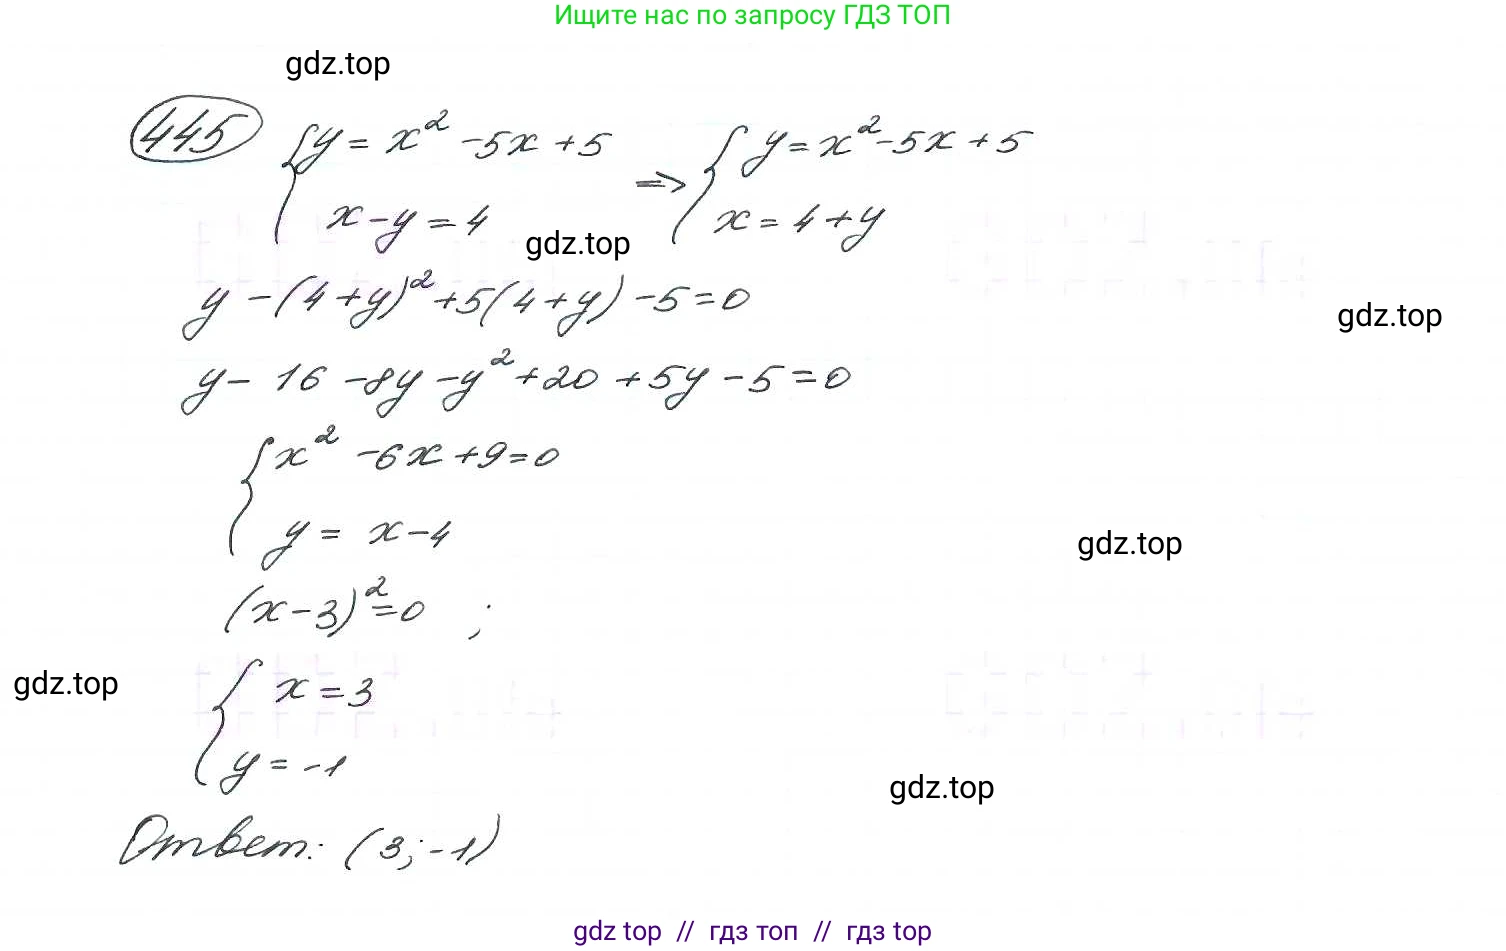 Ищите нас по запросу ГДЗ ТОП
gdz.top
445 { y = x² - 5x + 5 => { y = x² - 5x + 5
x - y = 4 x = 4 + y
gdz.top
y - (4 + y)² + 5(4 + y) - 5 = 0
gdz.top
y - 16 - 8y - y² + 20 + 5y - 5 = 0
{ x² - 6x + 9 = 0
y = x - 4
gdz.top
(x - 3)² = 0 ;
gdz.top
{ x = 3
y = -1
gdz.top
Ответ: (3; -1)
gdz top // гдз топ // гдз top